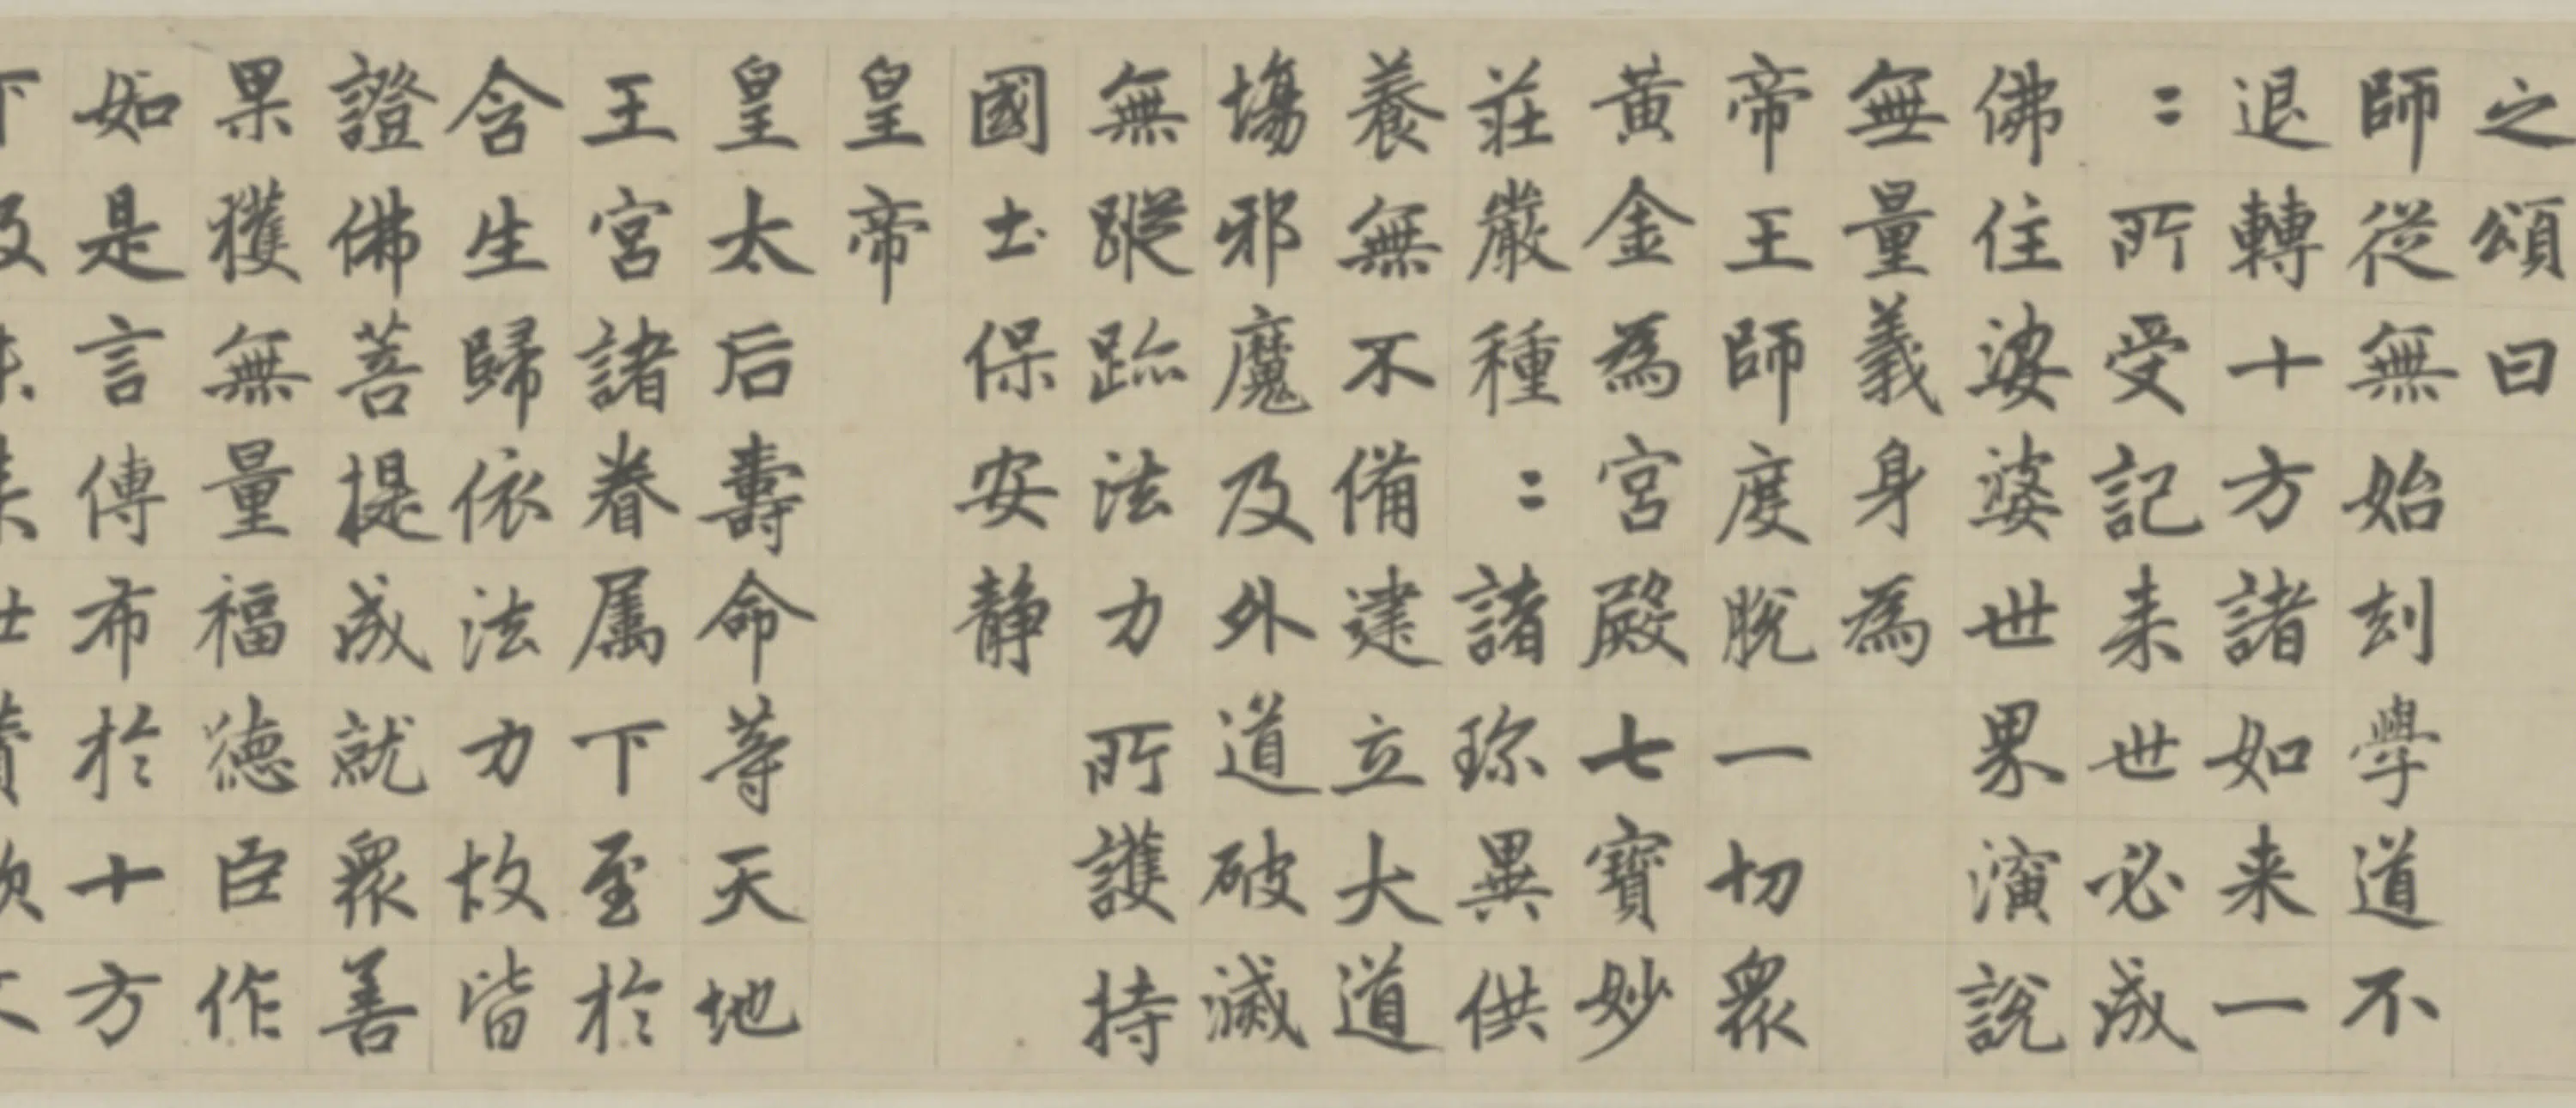 之頌曰
師從無始刦學道不
退轉十方諸如来一
：所受記来世必成
佛住娑婆世界演說
無量義身為
帝王師度脫一切衆
黃金為宮殿七寶妙
莊嚴種：諸珎異供
養無不備建立大道
塲邪魔及外道破滅
無蹤跡法力所護持
國土保安靜
皇帝
皇太后壽命等天地
王宮諸眷属下至於
含生歸依法力故皆
證佛菩提成就衆善
果獲無量福德臣作
如是言傳布於十方